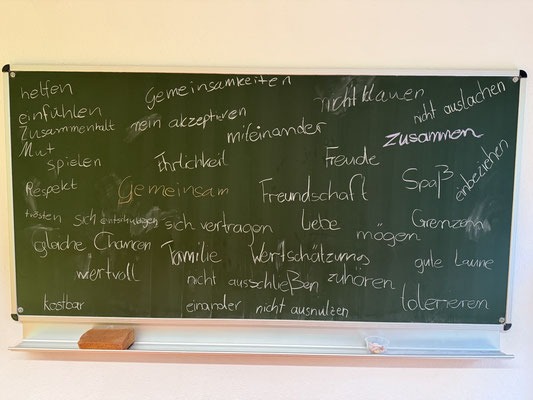 helfen
Gemeinsamkeiten
nicht klauen
nicht auslachen
einfühlen
nein akzeptieren
miteinander
zusammen
Zusammenhalt
Mut
spielen
Ehrlichkeit
Freude
Spaß
einbeziehen
Respekt
Gemeinsam
Freundschaft
trösten
sich entschuldigen
sich vertragen
Liebe
mögen
Grenzen
gleiche Chancen
Familie
Wertschätzung
gute Laune
wertvoll
nicht ausschließen
zuhören
kostbar
einander nicht ausnutzen
tolerieren